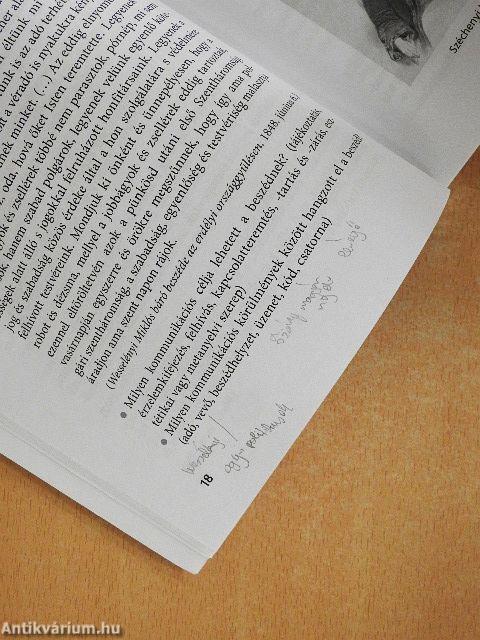 éltünk mi
ünk is az adó terhét
nt a véradó is nyakukra
nek minket. (...) Az eddig elnyom
oda, hová őket Isten teremtette. Legyenek
yok és zsellérek többé nem parasztok, pórnép, mi sem
sok, hanem szabad polgárok, legyenek velünk egyenlő köte-
ességek alatt álló s jogokkal felruházott honfitársaink. Legyenek a
jog és szabadság közös érdeke által a hon szolgálatára s védelméhez
felhívott testvéreink. Mondjuk ki önként és ünnepélyesen, hogy a
robot és dézsma, mellyel a jobbágyok és zsellérek eddig tartoztak,
ezennel eltöröltetvén azok a pünkösd utáni első Szentháromság
vasárnapján egyszerre és örökre megszűnnek, hogy így ama pol-
gári szentháromság, a szabadság, egyenlőség és testvériség malasztja
átadjon ama szent napon rájok.
(Wesselényi Miklós báró beszéde az erdélyi országgyűlésen, 1848. június 6.)
• Milyen kommunikációs célja lehetett a beszédnek? (tájékoztatás,
érzelemkifejezés, felhívás, kapcsolatteremtés, -tartás és -zárás, esz-
tétikai vagy metanyelvi szerep)
• Milyen kommunikációs körülmények között hangzott el a beszéd?
(adó, vevő, beszédhelyzet, üzenet, kód, csatorna)
magyar
18
Széchenyi
Antikvárium.hu